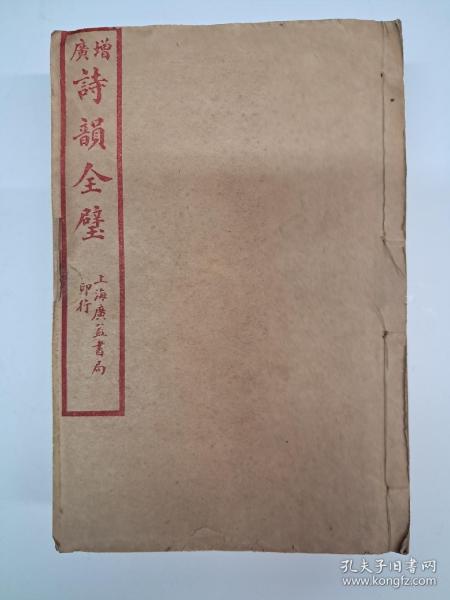 增廣
詩韻全璧
上海廣益書局
印行
孔夫子旧书网
www.kongfz.com